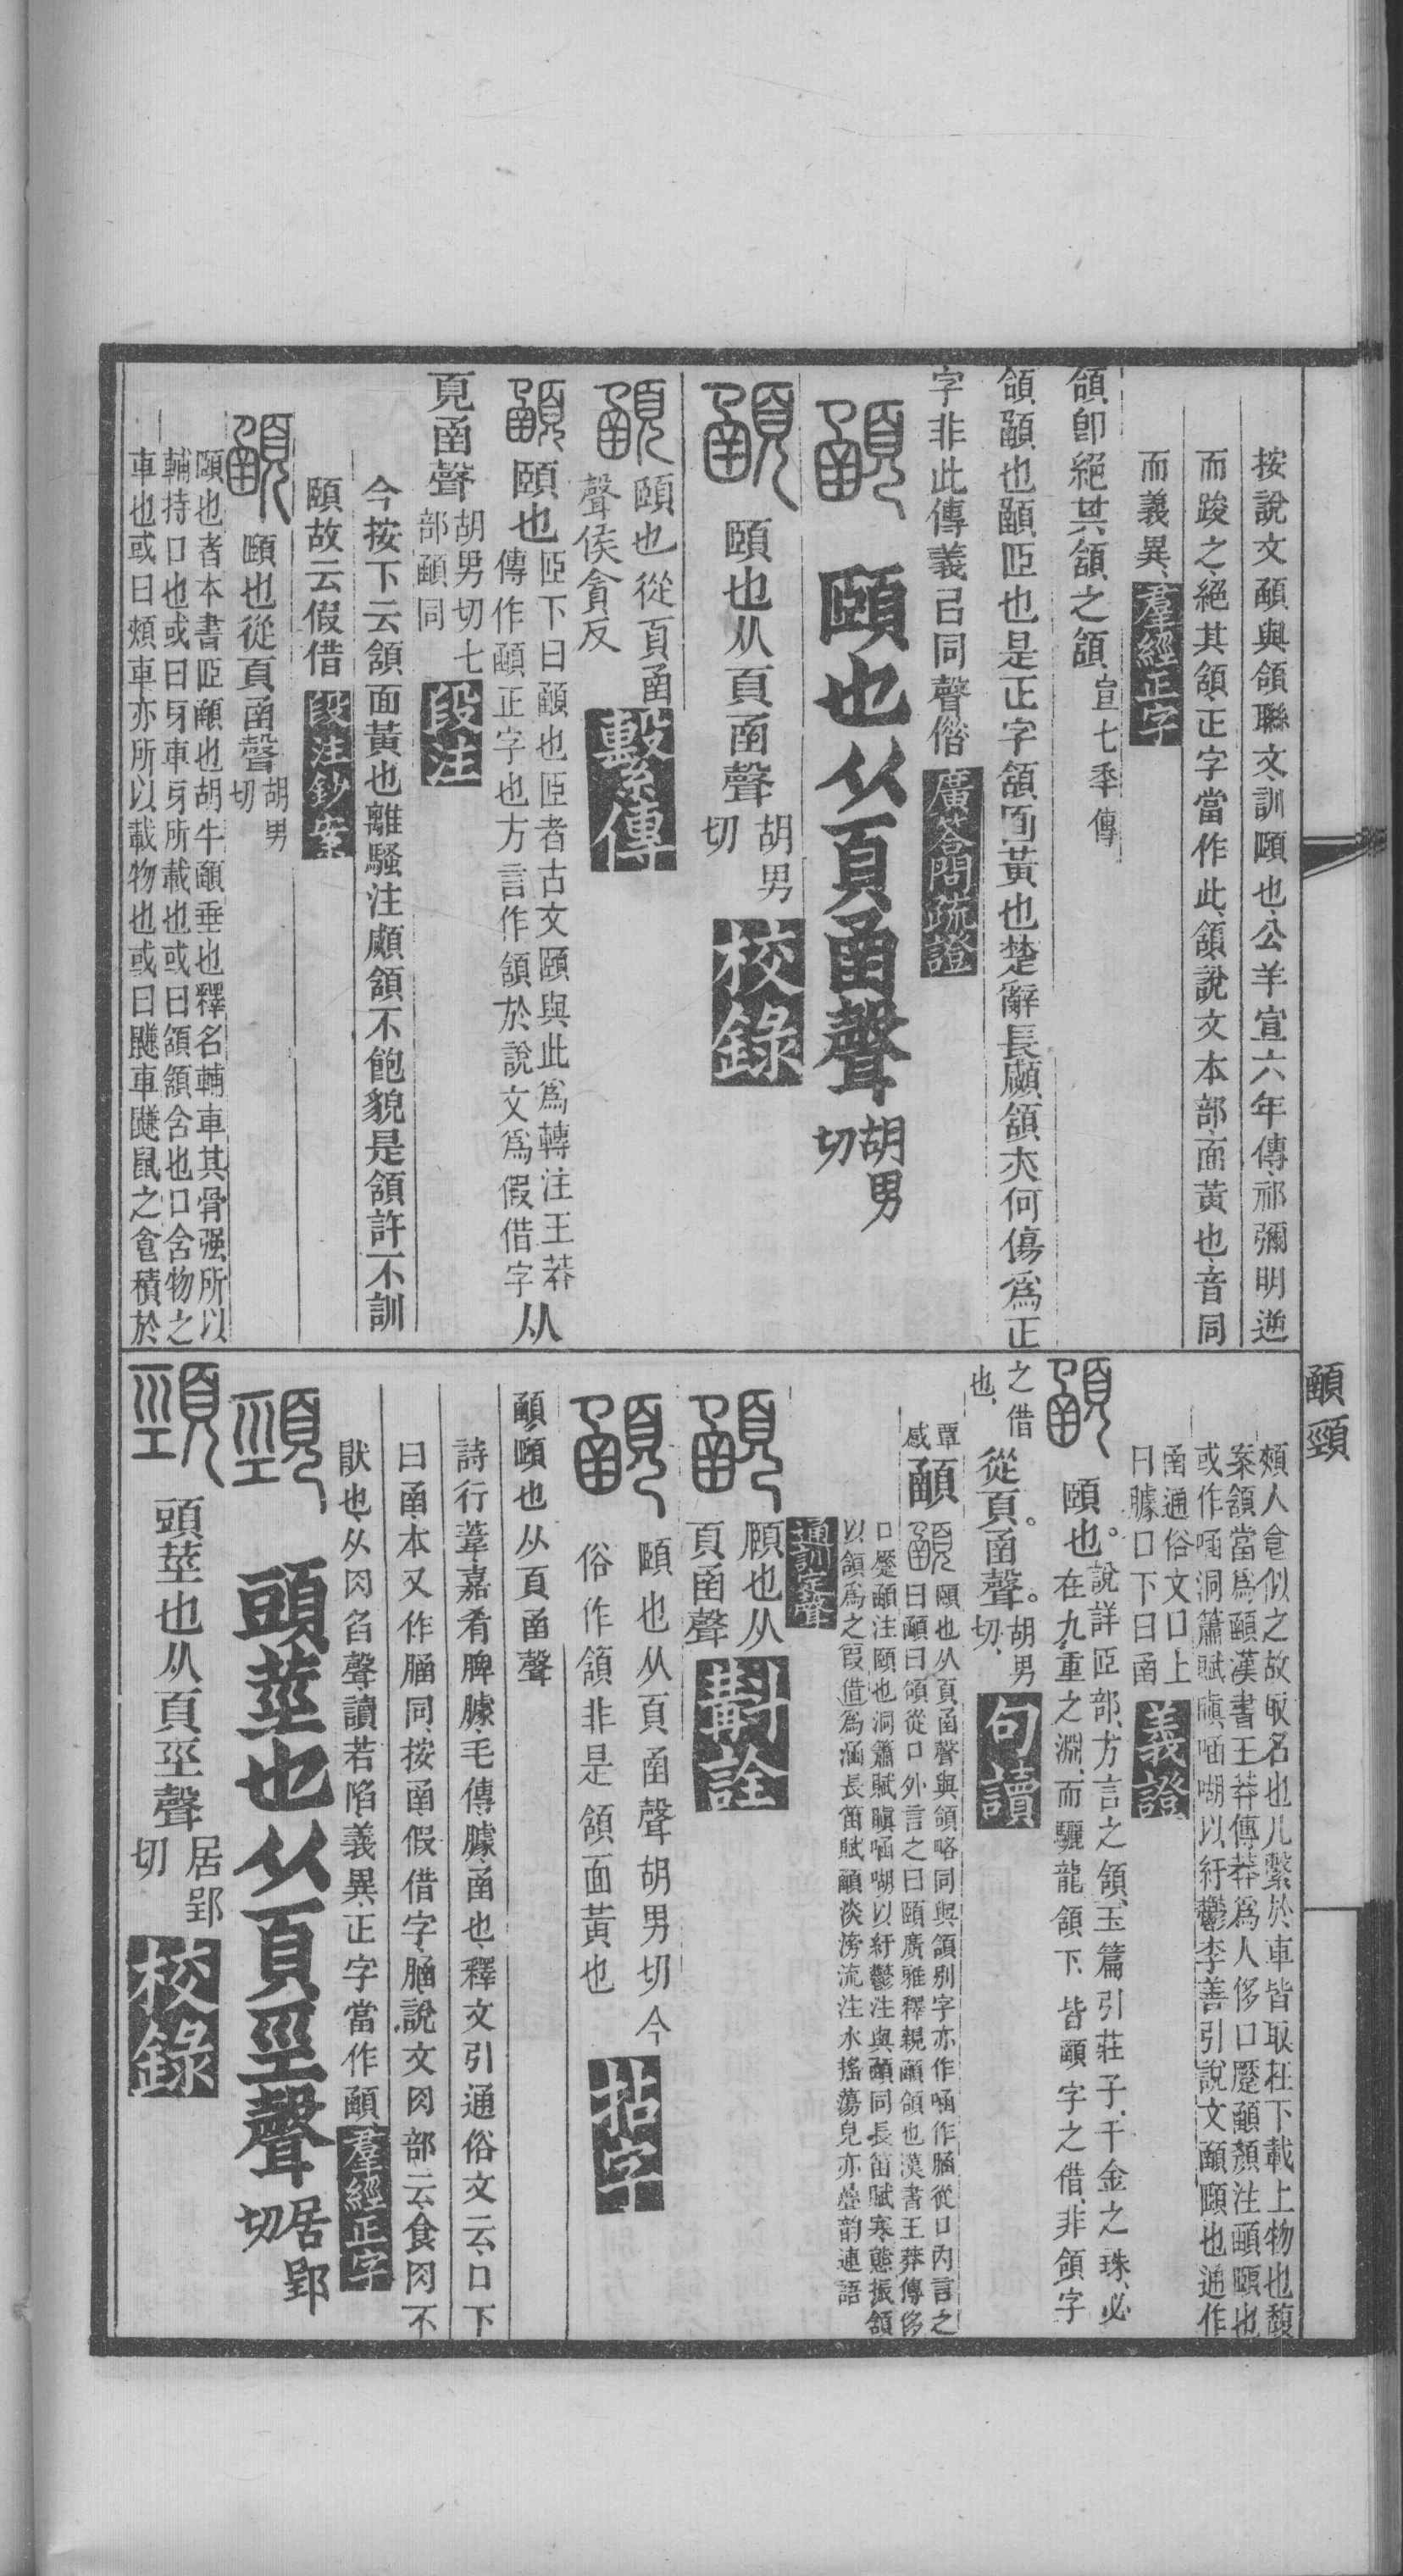 按說文顄與頷聯文訓頤也公羊宣六年傳祁彌明逆
而踆之絕其頷正字當作此頷說文本部面黃也音同
而義異羣經正字
頷卽絕其頷之頷宣七秊傳
頷顄也顄𦣞也是正字頷面黃也楚辭長顑頷亦何傷爲正
字非此傳義㠯同聲俗廣荅問疏證
顄 頤也从頁圅聲胡男切
顄 頤也从頁圅聲胡男切校錄
顄 頤也從頁圅聲侯貪反繫傳
顄 頤也𦣞下曰顄也𦣞者古文頤與此爲轉注王莽傳作顄正字也方言作頷於說文爲假借字从
頁圅聲胡男切七部顄同段注
今按下云頷面黃也離騷注顑頷不飽貌是頷許不訓
頤故云假借段注鈔案
顄 頤也從頁圅聲胡男切
頤也者本書𦣞顄也胡牛顄垂也釋名輔車其骨强所以
輔持口也或曰牙車牙所載也或曰頷頷含也口含物之
車也或曰頰車亦所以載物也或曰䶢車䶢鼠之食積於
頰人食似之故取名也凡繫於車皆取在下載上物也馥
案頷當爲顄漢書王莽傳莽爲人侈口蹷顄顏注顄頤也
或作㖤洞簫賦瞋㖤㗅以紆鬱李善引說文顄頤也通作
圅通俗文口上曰臄口下曰圅義證
顄 頤也。說詳𦣞部方言之頷玉篇引莊子千金之珠必在九重之淵而驪龍頷下皆顄字之借非頷字
之借也從頁。圅聲。胡男切句讀
覃感顄
顄 頤也从頁圅聲與頷略同與頷别字亦作㖤作䐄從口內言之
曰顄曰頷從口外言之曰頤廣雅釋親顄頷也漢書王莽傳侈
口蹷顄注頤也洞簫賦瞋㖤㗅以紆鬱注與顄同長笛賦寒熊振頷
以頷爲之叚借爲涵長笛賦顄淡滂流注水搖蕩皃亦疊韵連語
通訓定聲
顄 頤也从頁圅聲斠詮
顄 頤也从頁圅聲胡男切今俗作頷非是頷面黃也拈字
顄頤也从頁圅聲
詩行葦嘉肴脾臄毛傳臄圅也釋文引通俗文云口下
曰圅本又作䐄同按圅假借字䐄說文肉部云食肉不
猒也从肉臽聲讀若陷義異正字當作顄羣經正字
頸 頭莖也从頁巠聲居郢切
頸 頭莖也从頁巠聲居郢切校錄
顄頸